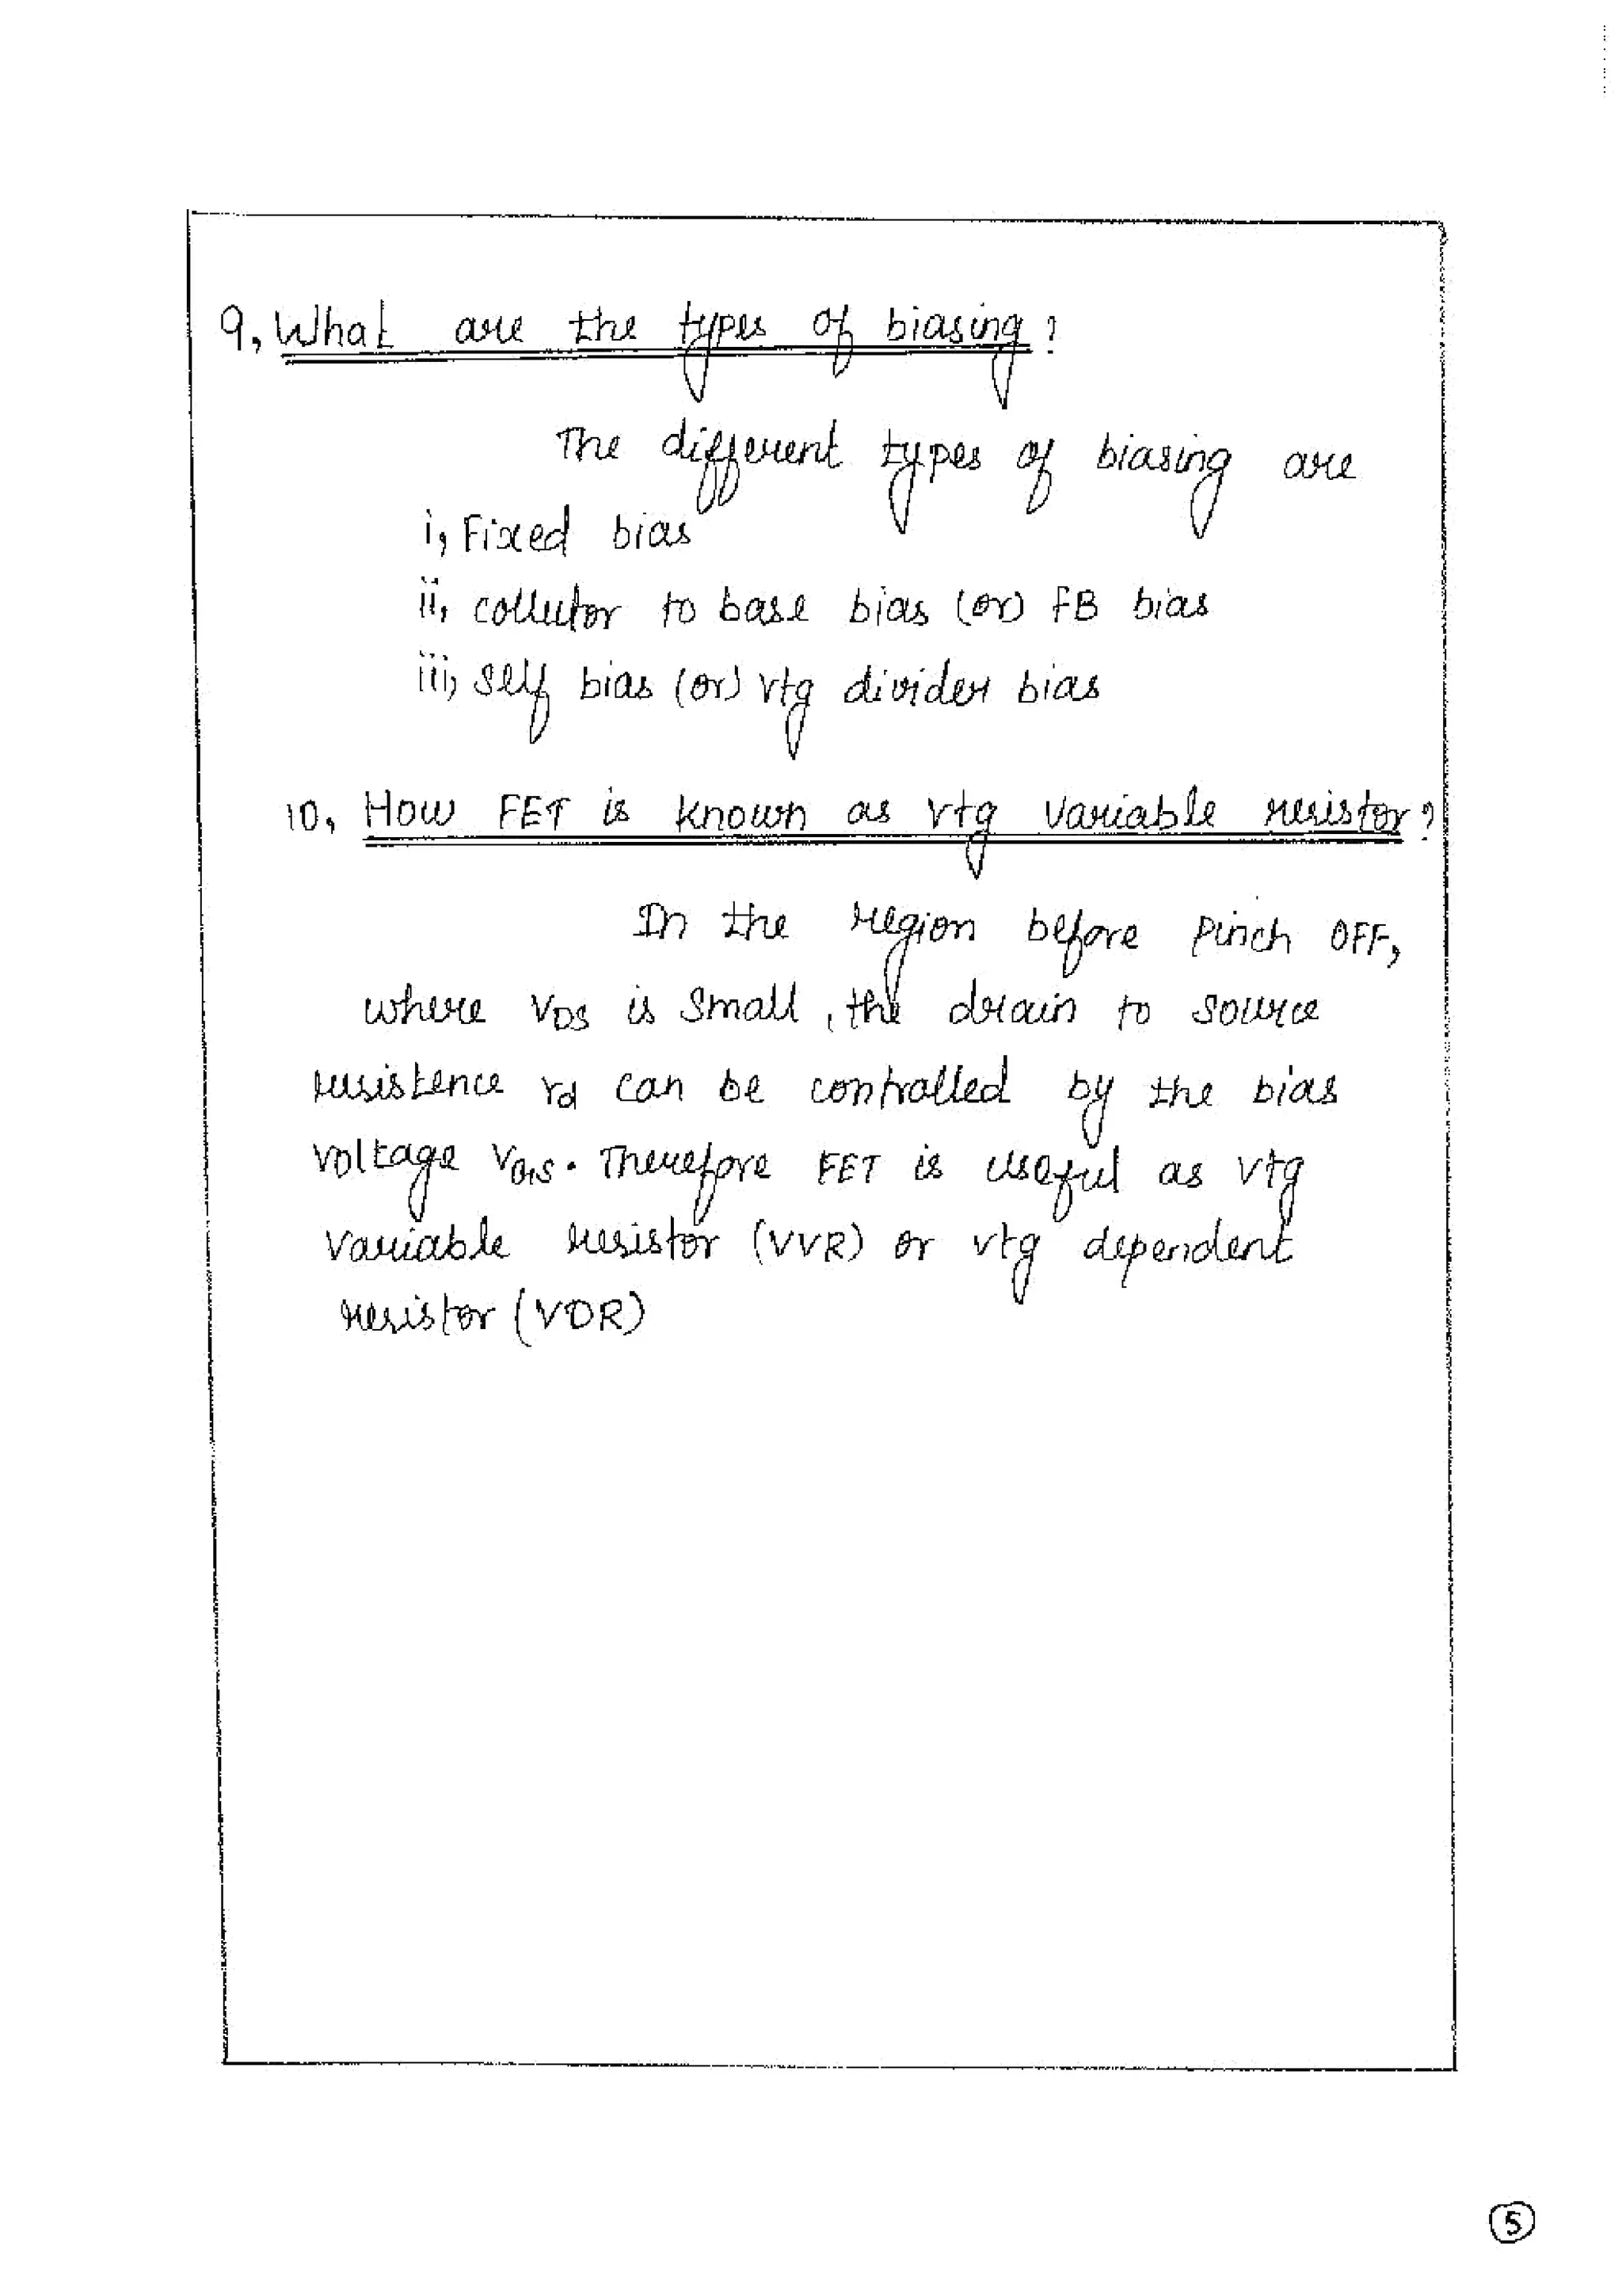 9, What are the types of biasing?
The different types of biasing are
i, Fixed bias
ii, collector to base bias (or) FB bias
iii, self bias (or) vtg divider bias
10, How FET is known as vtg variable resistor?
In the region before pinch OFF,
where VDS is small, the drain to source
resistence rd can be controlled by the bias
voltage VGS. Therefore FET is useful as vtg
variable resistor (VVR) or vtg dependent
resistor (VDR)
5